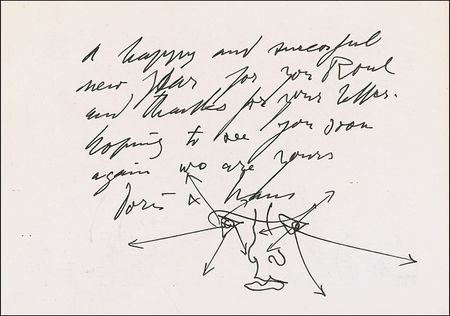 a happy and successful
new year for you Roul
and thanks for your letter.
hoping to see you soon
again we are yours
Doris & Hans